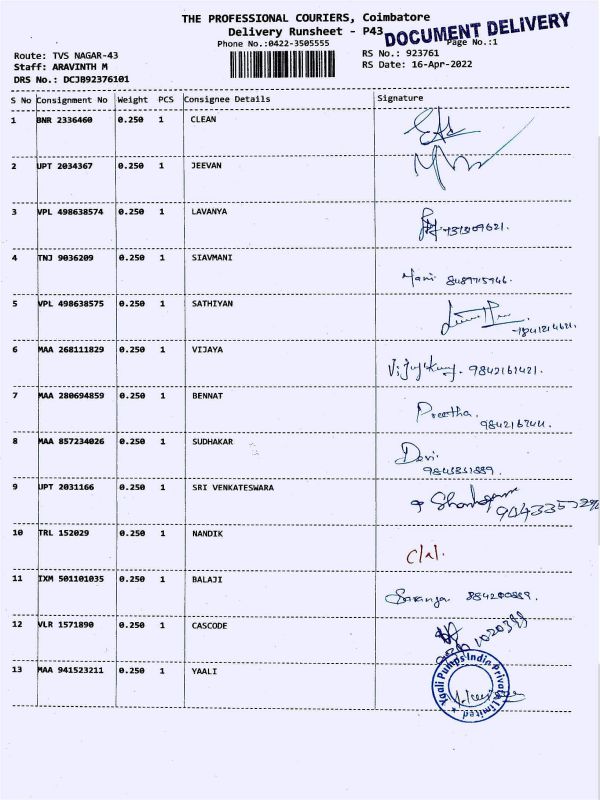 THE PROFESSIONAL COURIERS, Coimbatore
Delivery Runsheet - P43
DOCUMENT DELIVERY
Phone No.:0422-3505555
Page No.:1
Route: TVS NAGAR-43
RS No.: 923761
Staff: ARAVINTH M
RS Date: 16-Apr-2022
DRS No.: DCJB92376101
S No Consignment No Weight PCS Consignee Details Signature
1 BNR 2336460 0.250 1 CLEAN
2 UPT 2034367 0.250 1 JEEVAN
3 VPL 498638574 0.250 1 LAVANYA
4 TNJ 9036209 0.250 1 SIAVMANI
Mani
5 VPL 498638575 0.250 1 SATHIYAN
6 MAA 268111829 0.250 1 VIJAYA
9842161421.
7 MAA 280694859 0.250 1 BENNAT
Preetha.
8 MAA 857234026 0.250 1 SUDHAKAR
Devi
9 UPT 2031166 0.250 1 SRI VENKATESWARA
10 TRL 152029 0.250 1 NANDIK
11 IXM 501101035 0.250 1 BALAJI
12 VLR 1571890 0.250 1 CASCODE
13 MAA 941523211 0.250 1 YAALI
Pumps India Private Limited